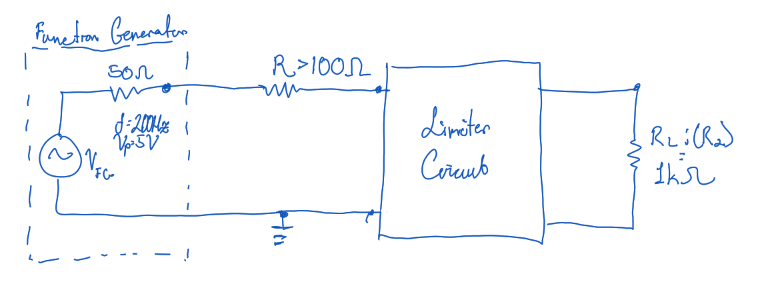 Function Generator
50Ω
R>100Ω
f=200Hz
Vp=5V
V_FG
Limiter
Circuit
R_L:(R_2)
1kΩ